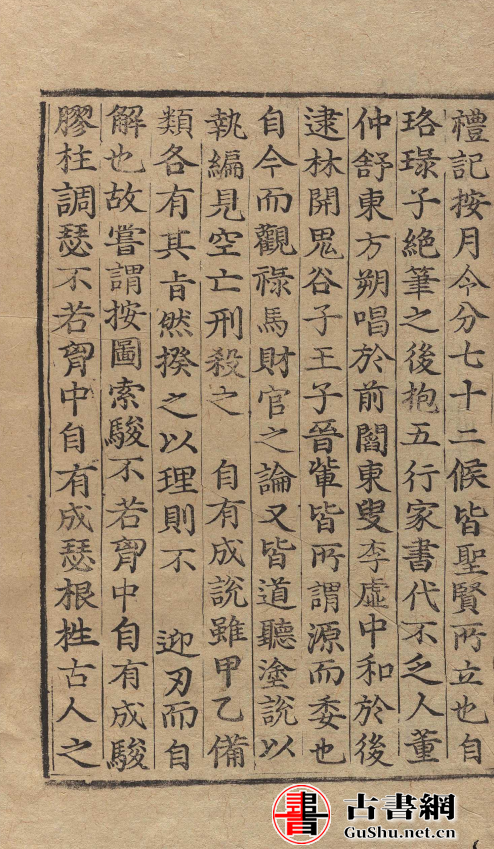 禮記按月令分七十二候皆聖賢所立也自
珞琭子絶筆之後抱五行家書代不乏人董
仲舒東方朔唱於前閻東叟李虛中和於後
逮林開鬼谷子王子晉軰皆所謂源而委也
自今而觀祿馬財官之論又皆道聽塗說以
執編見空亡刑殺之 自有成說雖甲乙備
類各有其旨然揆之以理則不 迎刃而自
解也故嘗謂按圖索駿不若胷中自有成駿
膠柱調瑟不若胷中自有成瑟根性古人之
古書網
GuShu.net.cn